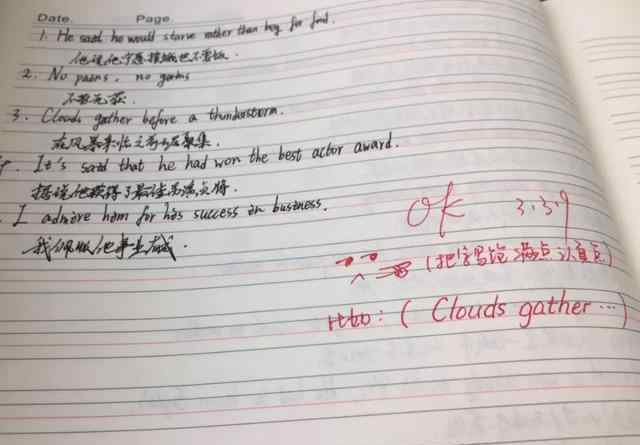 Date. Page
1. He said he would starve rather than beg for food.
他说他宁愿挨饿也不要饭.
2. No pains, no gains
不劳无获.
3. Clouds gather before a thunderstorm.
在风暴来临之前云聚集.
. It's said that he had won the best actor award.
据说他获得了最佳男演员奖.
. I admire him for his success in business.
我佩服他事业有成.
Ok 3.3.9
(把字写饱满点 认真点)
: ( Clouds gather ...)